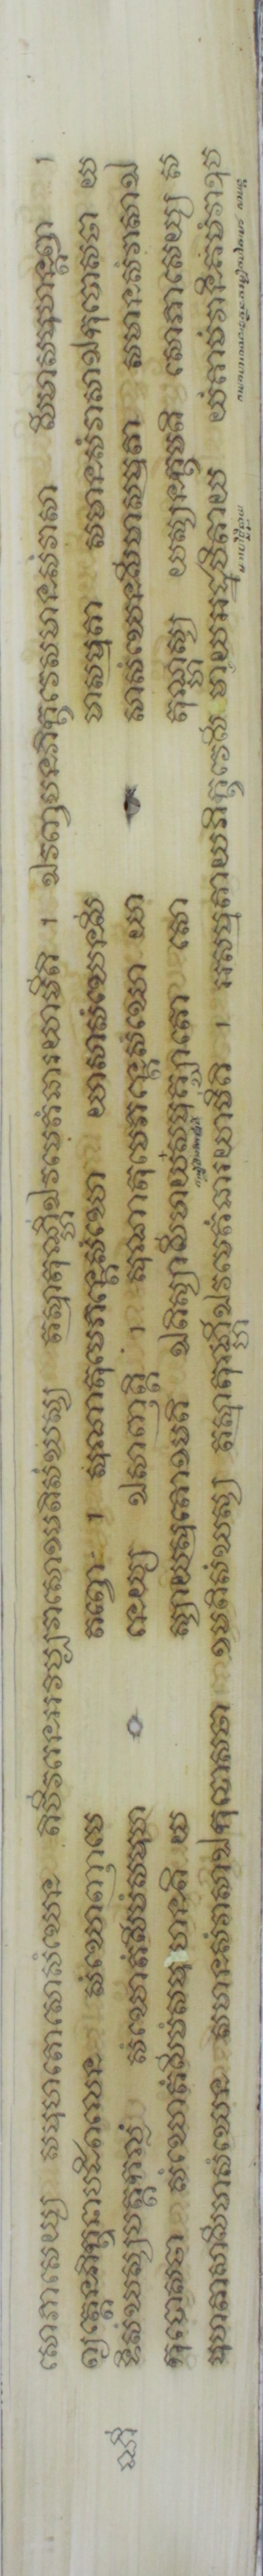 សោភាសេយ្យ សមុហតោសោសំឃេន តិចីវរេនអវិប្បវាសោខមតិសំឃស្ស តស្មាតុណ្ហីឯវមេតំធារយាមីតិ ។ ឯវញ្ចបនភិក្ខវេសមានសំវាសា សីមាសមុហន្តព្ពា ។
ព្យត្តេនភិក្ខុនាបដិពលេន សំឃោញាបេ តព្វោ ។ សុណាតុមេភន្តេសំឃោ យាសាសំឃេនសី មាសម្មតា សមានសំវាសាឯកុបោសថា យ
ណី
ទិសំឃស្សបត្តកល្លំ សំឃោតំសីមំសមុហ នេយ្យ ឯសាញត្តិ ។ សុណាតុមេភន្តេសំឃោ យា សាសំឃេនសីមាសម្មតា សមានសំវាសាឯ
កុបោសថា សំឃោតំសីមំសមុហានតិ យ ស្សាយស្មតោខមតិ ឯតិស្សាសីមាយសមុគ្ឃាតោ សោ តុណ្ហស្ស យស្សនក្ខមតិ សោភាសេយ្យ ស
មុហតាសាសីមាសំឃេន សមានសំវាសាឯកុបោសថា ខមតិសំឃស្ស តស្មាតុណ្ហីឯវមេតំធារយាមីតិ ។ អសម្មតាយភិក្ខវេសី មាយអដ្ឋបិតាយ យំគាមំវានិគមំវាឧប